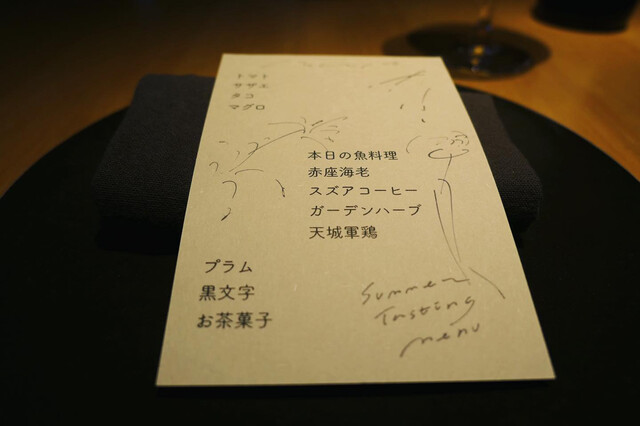 トマト
サザエ
タコ
マグロ
本日の魚料理
赤座海老
スズアコーヒー
ガーデンハーブ
天城軍鶏
プラム
黒文字
お茶菓子
Summer
Tasting
menu